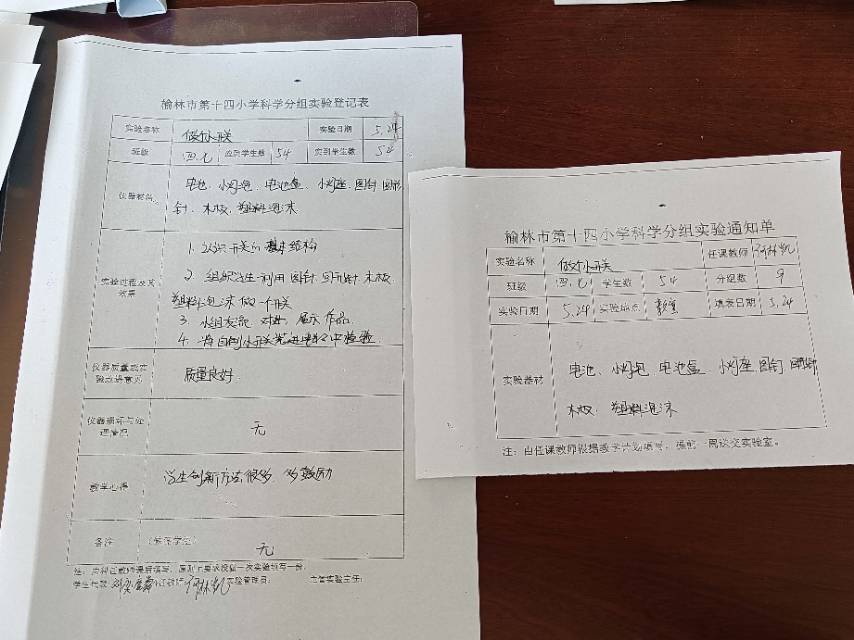 榆林市第十四小学科学分组实验登记表
实验名称 做个小开关 实验日期 5.24
班级 四.七 应到学生数 54 实到学生数 54
仪器材料 电池、小灯泡、电池盒、小灯座 图钉 回形
针、木板、塑料泡沫
实验过程及其效果
1. 认识开关的基本结构
2. 组织学生利用图钉 回形针 木板
塑料泡沫做一个开关
3. 小组交流 展示作品
4. 将自制小开关 中检验
仪器质量或实验改进意见 质量良好
仪器损坏与处理情况 无
教学心得 学生创新方法很多 多鼓励
备注 无
学生代表 任课教师 何林凯 实验管理员: 主管实验主任:
榆林市第十四小学科学分组实验通知单
实验名称 做个小开关 任课教师 何林凯
班级 四.七 学生数 54 分组数 9
实验日期 5.24 实验地点 教室 填表日期 5.24
实验器材 电池、小灯泡 电池盒 小灯座 图钉 回形针
木板、塑料泡沫
注:由任课教师根据教学计划填写,提前一周送交实验室。